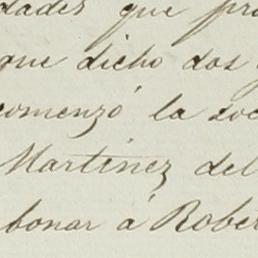 dades que pro
que dicho dos
comenzó la soc
Martinez del
bonar á Rober